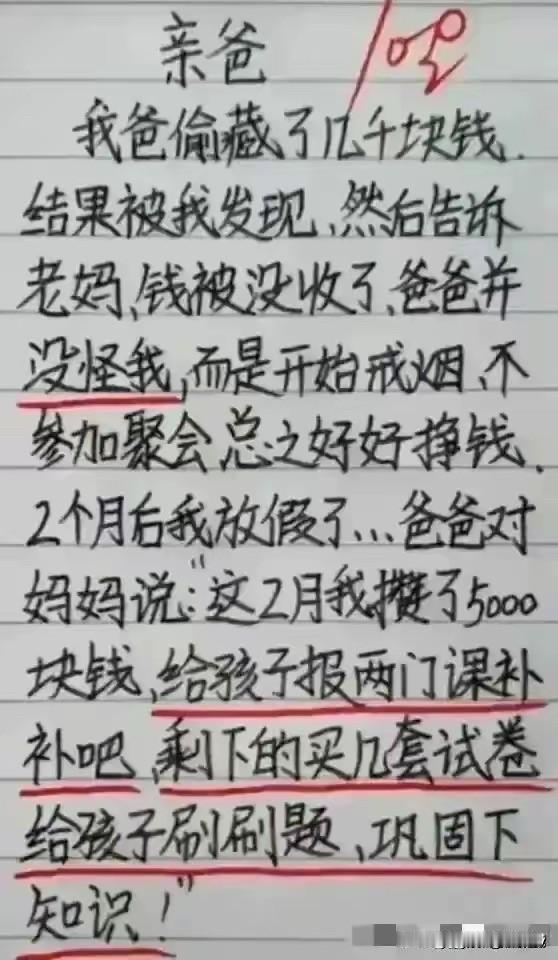 亲爸
我爸偷藏了几千块钱.
结果被我发现,然后告诉
老妈,钱被没收了,爸爸并
没怪我,而是开始戒烟,不
参加聚会总之好好挣钱.
2个月后我放假了...爸爸对
妈妈说:"这2月我攒了5000
块钱,给孩子报两门课补
补吧,剩下的买几套试卷
给孩子刷刷题、巩固下
知识!"